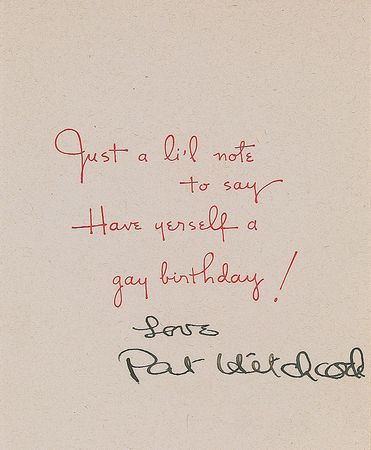 Just a li'l note
to say
Have yerself a
gay birthday!
Love
Pat Hitchcock